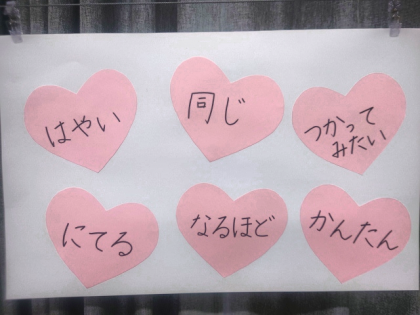 はやい
同じ
つかって
みたい
にてる
なるほど
かんたん